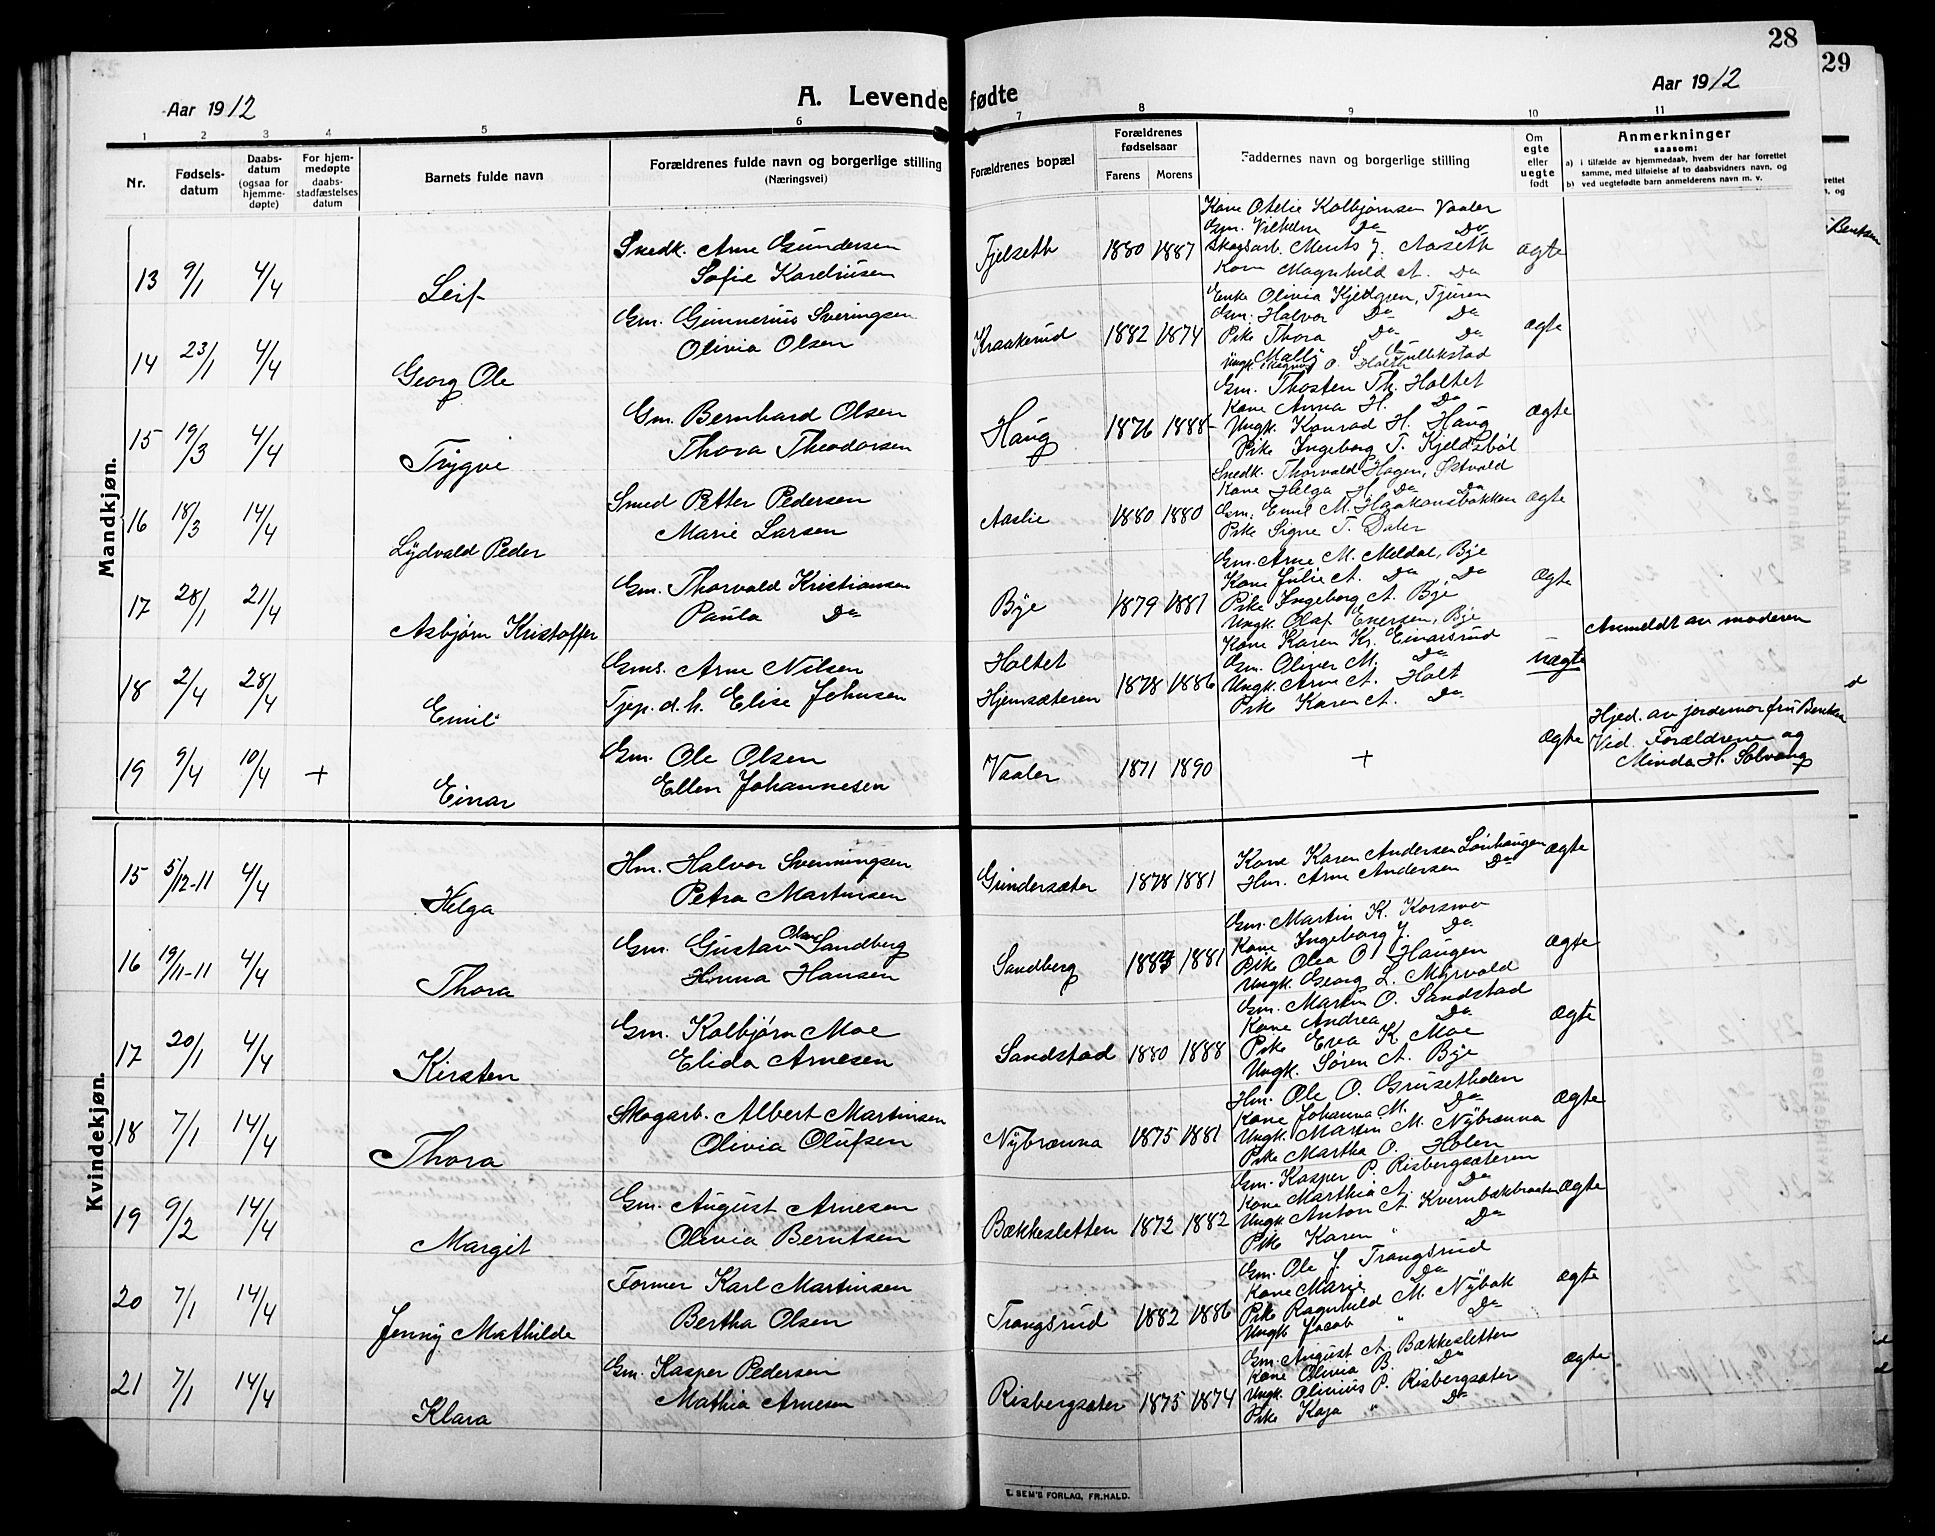 28
29
Aar 1912
A. Levende fødte
Aar 1912
1 2 3 4 5 6 7 8 9 10 11
Nr.
Fødsels-
datum
Daabs-
datum
(ogsaa for
hjemme-
døpte)
For hjem-
medøpte
daabs-
stadfæstelses
datum
Barnets fulde navn
Forældrenes fulde navn og borgerlige stilling
(Næringsvei)
Forældrenes bopæl
Forældrenes
fødselsaar
Farens Morens
Faddernes navn og borgerlige stilling
Om
egte
eller
uegte
født
Anmerkninger
saasom:
a) i tilfælde av hjemmedaab, hvem der har forrettet
samme, med tilføielse af to daabsvidners navn, og
b) ved uegtefødte barn anmelderens navn m. v.
Mandkjøn.
13 9/1 4/4 Leif
Snedk. Arne Gundersen
Sofie Kareliusen
Fjelseth 1880 1887
Kone Otelie Kolbjørnsen Vaaler
Gm. Vilhelm Do Do
Skogsarb. Ments J. Aaseth
Kone Magnhild A. Do
ægte
14 23/1 4/4 Georg Ole
Gm. Gunnerius Sveringsen
Olivia Olsen
Kraakerud 1882 1874
Enke Olivia Kjelgren, Tjuren
Gm. Halvor Do Do
Pike Thora Do Do
ægte
15 19/3 4/4 Trygve
Gm. Bernhard Olsen
Thora Theodorsen
Haug 1876 1888
Gm. Thosten Th. Holtet
Kone Anna H. Do
Ungk. Konrad H. Haug
Pike Ingeborg T. Kjeldsbøl
ægte
16 18/3 14/4 Lydvald Peder
Smed Petter Pedersen
Marie Larsen
Aaslie 1880 1880
Snedk. Thorvald Hagen, Østvold
Kone Helga H. Do Do
Gm. Emil M. Haakonsbakken
Pike Signe T. Daler
ægte
17 28/1 21/4 Asbjørn Kristoffer
Gm. Thorvald Kristiansen
Paula Do
Bye 1879 1881
Gm. Arne M. Meldal, Bye
Kone Julie A. Do, Do
Pike Ingeborg A. Bye
Ungk. Olaf Enersen, Bye
ægte
18 2/4 28/4 Emil
Gms. Arne Nilsen
Tjep. d. h. Elise Johnsen
Holtet
Hjemsæteren 1878 1886
Kone Karen Kr. Einarsrud
Gm. Oliver M. Do
Ungk. Arne A. Holt
Pike Karen A. Do
uægte
Anmeldt av moderen
19 9/4 10/4 + Einar
Gm. Ole Olsen
Ellen Johannesen
Vaaler 1871 1890
+
ægte
Hjed. av jordemor fru Bentsen
Vid. Forældrene og
Minda H. Solvang
Kvindekjøn.
15 5/12-11 4/4 Helga
Hm. Halvor Svenningsen
Petra Martinsen
Gundersæter 1878 1881
Kone Karen Andersen Lønhaugen
Hm. Arne Andersen Do
ægte
16 19/11-11 4/4 Thora
Gm. Gustav Olav Sandberg
Hinna Hansen
Sandberg 1884 1881
Gm. Martin K. Korsmo
Kone Ingeborg J. Do
Pike Olea O. Haugen
Ungk. Georg L. Myrvold
ægte
17 20/1 4/4 Kirsten
Gm. Kolbjørn Moe
Elida Arnesen
Sandstad 1880 1888
Gm. Martin O. Sandstad
Kone Andrea Do
Pike Eva K. Moe
Ungk. Søren A. Bye
ægte
18 7/1 14/4 Thora
Skogarb. Albert Martinsen
Olivia Olufsen
Nybrænna 1875 1881
Hm. Ole O. Grusetheden
Kone Johanna M. Do
Ungk. Martin M. Nybrænna
Pike Martha O. Holen
ægte
19 9/2 14/4 Margit
Gm. August Arnesen
Olivia Berntsen
Bækkesletten 1872 1882
Gm. Kasper P. Risbergsæteren
Kone Marthia A. Do
Ungk. Anton A. Kvernbækbraaten
Pike Karen " Do
ægte
20 7/1 14/4 Jenny Mathilde
Former Karl Martinsen
Bertha Olsen
Trangsrud 1882 1886
Gm. Ole J. Trangsrud
Kone Marie Do
Pike Ragnhild M. Nybak
Ungk. Jacob " Do
ægte
21 7/1 14/4 Klara
Gm. Kasper Pedersen
Mathia Arnesen
Risbergsæter 1875 1874
Gm. August A. Bækkesletten
Kone Olivia B. Do
Ungk. Olivius P. Risbergsæter
Pike Kaja " Do
ægte
E. SEM'S FORLAG, FR.HALD.